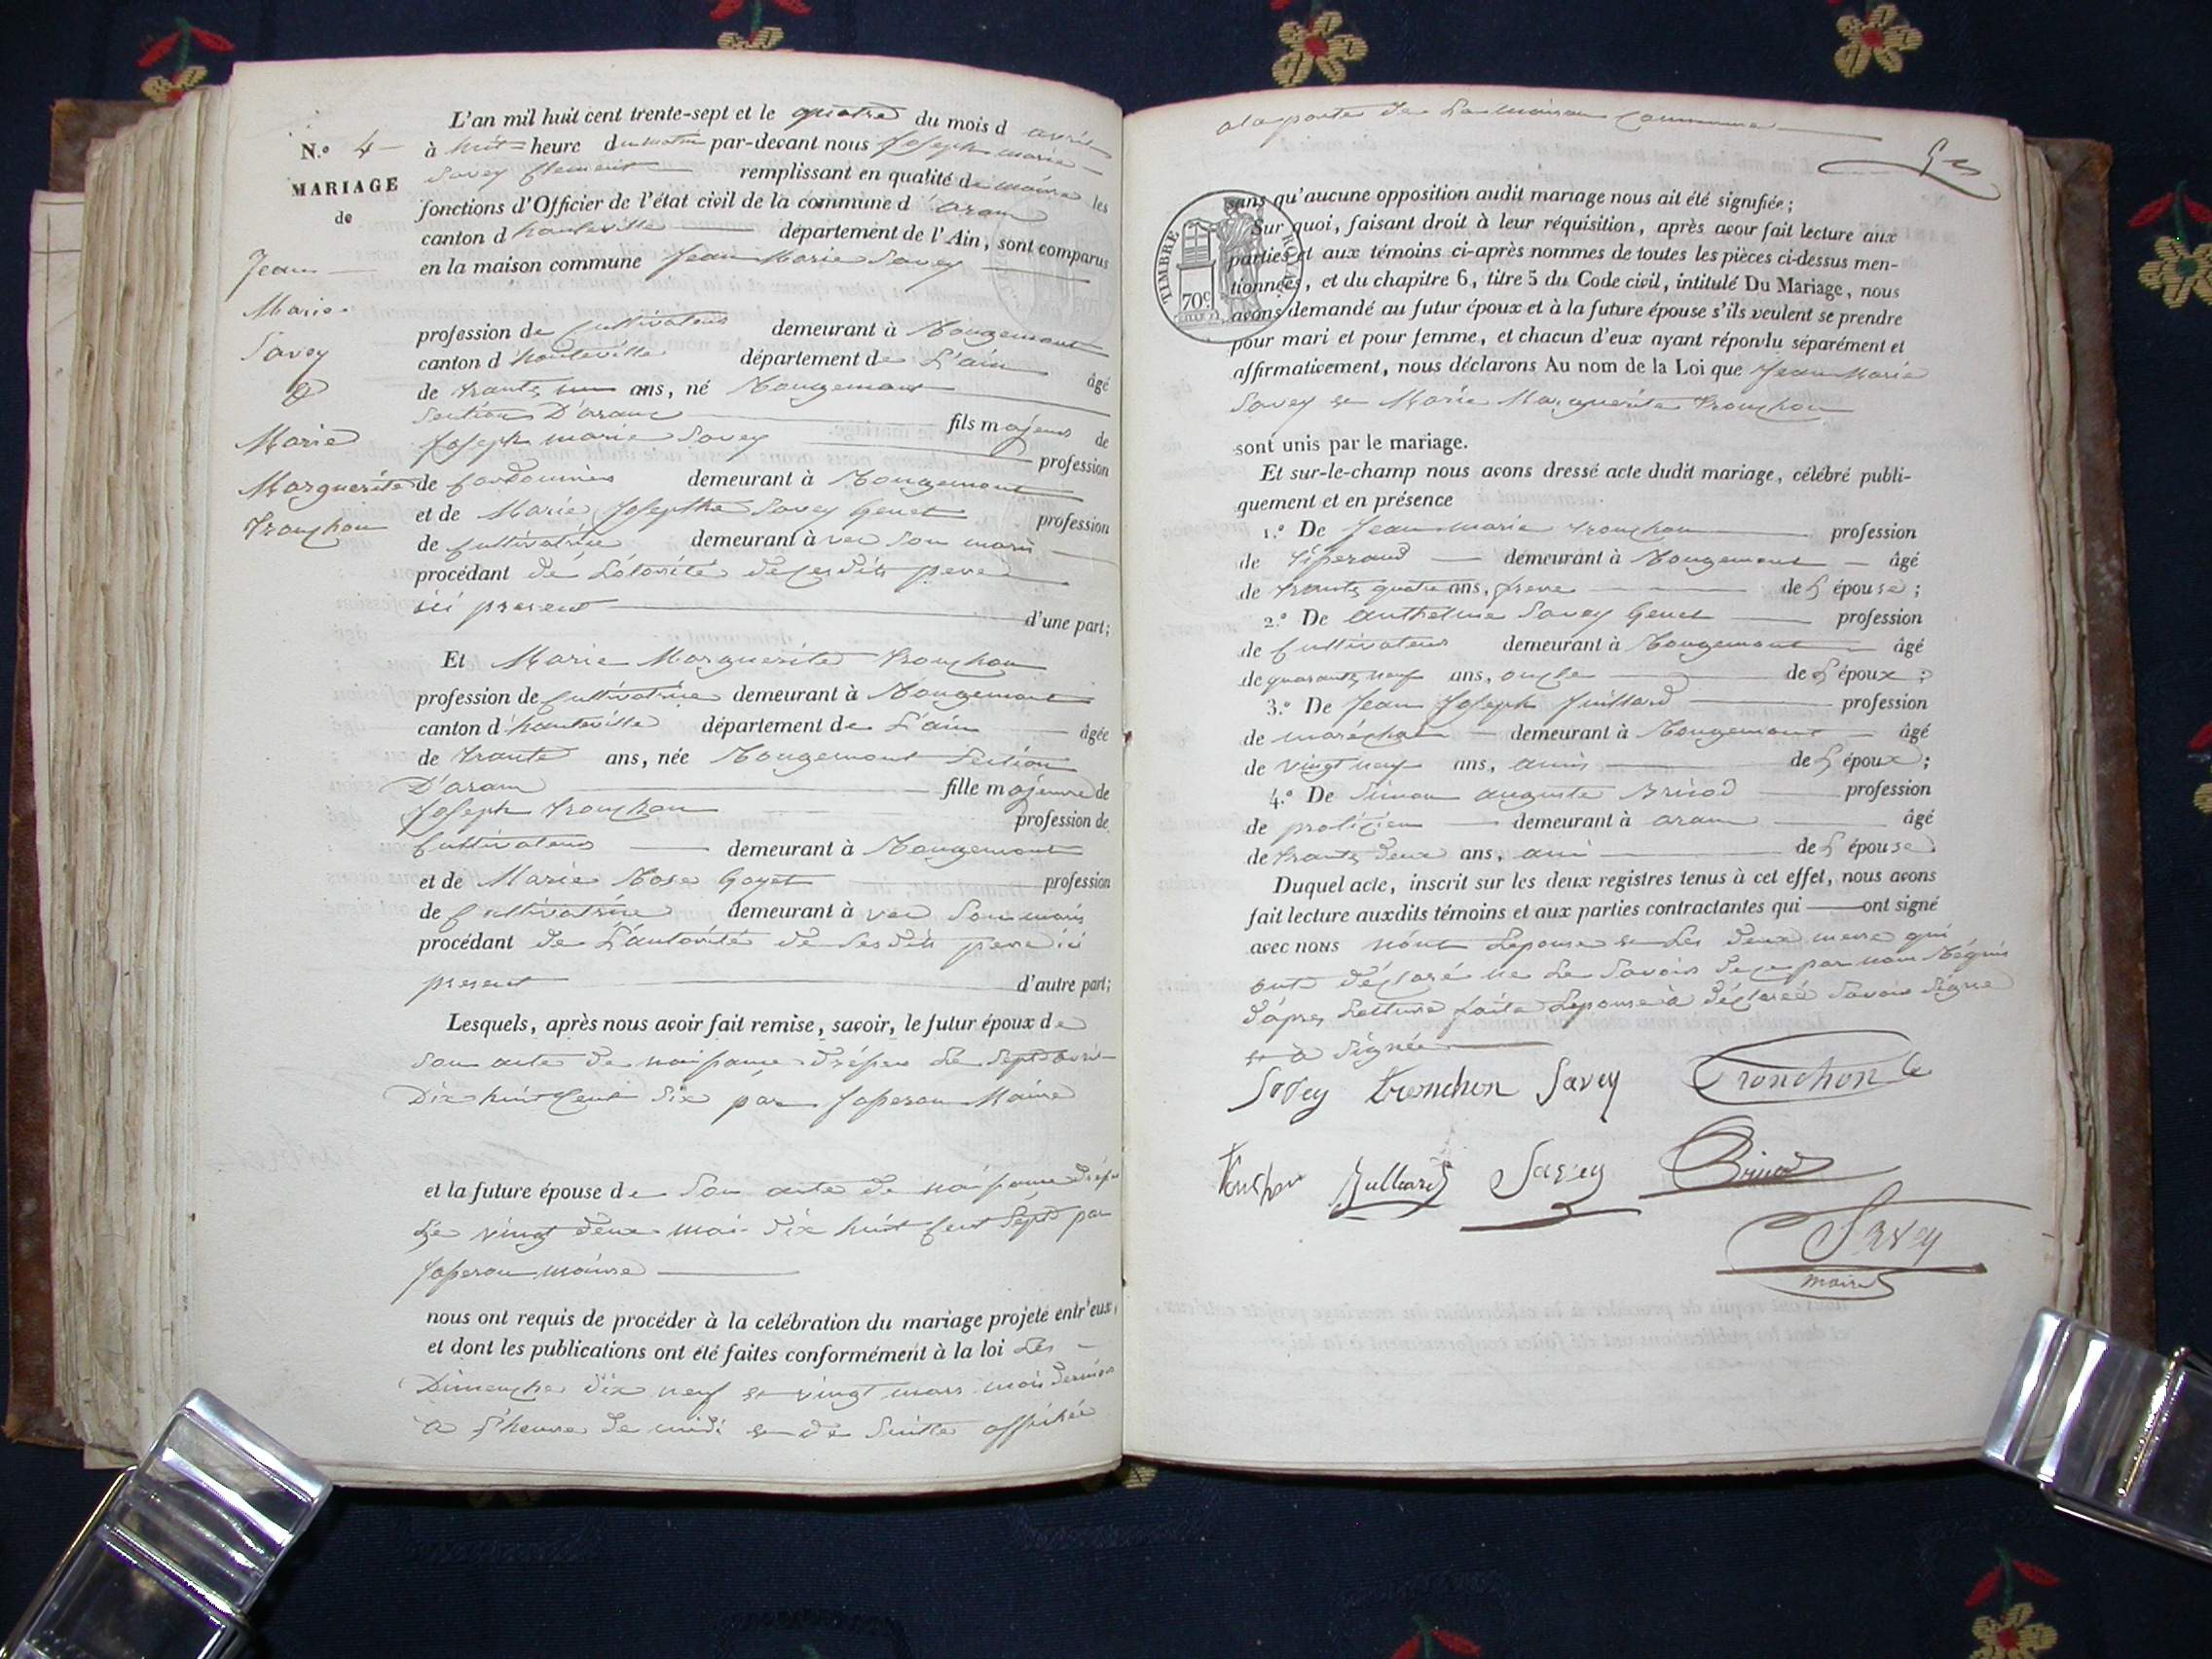 L'an mil huit cent trente-sept et le quatre du mois d avril
N.º 4 à huit heure du matin par-devant nous Joseph marie
MARIAGE Savey Clement remplissant en qualité de maire les
de fonctions d'Officier de l'état civil de la commune d'aranc
canton d'hauteville département de l'Ain, sont comparus
Jean en la maison commune Jean Marie Savey
Marie
profession de Cultivateur demeurant à Rougemont
Savey canton d'hauteville département de L'ain âgé
& de trante un ans, né Rougemont
Section D'aranc fils majeur de
Marie Joseph marie Savey profession
Marguerite de Cordonnier demeurant à Rougemont
et de Marie Josephte Savey Genet profession
Tronchon de Cultivatrice demeurant à vec Son marie
procédant de Lotorité de ces dits pere
ici present d'une part;
Et Marie Marguerite Tronchon
profession de Cultivatrice demeurant à Rougemont
canton d'hauteville département de L'ain âgée
de trante ans, née Rougemont Section
D'aranc fille majeure de
Joseph Tronchon profession de
Cultivateur demeurant à Rougemont
et de Marie Rose Goyet profession
de Cultivatrice demeurant à vec Son maris
procédant de L'autorité de Ses dits pere ici
present d'autre part;
Lesquels, après nous avoir fait remise, savoir, le futur époux de
Son acte de naissance drésser Le Sept avril
Dix huit Cent Six par Maire
et la future épouse de Son acte de naissance
Le vingt deux mai dix huit Cent Sept par
maire
nous ont requis de procéder à la célébration du mariage projeté entr'eux,
et dont les publications ont été faites conformément à la loi Les
Dimenche dix neuf et vingt mars mois dernier
a L'heure de midi et de Suitte affichée
a la porte de La maison Commune
TIMBRE ROYAL
70 c.
sans qu'aucune opposition audit mariage nous ait été signifiée;
Sur quoi, faisant droit à leur réquisition, après avoir fait lecture aux
parties et aux témoins ci-après nommes de toutes les pièces ci-dessus men-
tionnées, et du chapitre 6, titre 5 du Code civil, intitulé Du Mariage, nous
avons demandé au futur époux et à la future épouse s'ils veulent se prendre
pour mari et pour femme, et chacun d'eux ayant répondu séparément et
affirmativement, nous déclarons Au nom de la Loi que Jean Marie
Savey et Marie Marguerite Tronchon
sont unis par le mariage.
Et sur-le-champ nous avons dressé acte dudit mariage, célébré publi-
quement et en présence
1.º De Jean marie Tronchon profession
de Tisserand demeurant à Rougemont âgé
de trante quatre ans, frere de L'épouse;
2.º De anthelme Savey Genet profession
de Cultivateur demeurant à Rougemont âgé
de quarante neuf ans, oncle de L'époux;
3.º De Jean Joseph Juillard profession
de maréchal demeurant à Rougemont âgé
de vingt neuf ans, amis de L'époux;
4.º De Simon auguste Bricod profession
de praticien demeurant à aranc âgé
de trante deux ans, ami de L'épouse
Duquel acte, inscrit sur les deux registres tenus à cet effet, nous avons
fait lecture auxdits témoins et aux parties contractantes qui ont signé
avec nous nont Lepouse et Les deux mere qui
ont déclaré ne Le Savoir de ce par nous Réquis
d'apres Letture faite Lepouse à déclareé Savoir Signe
et à Signée
Savey tronchon Savey Tronchon
Tonchon Julliard Savey Bricod
Savey
maire